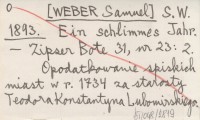 [WEBER Samuel] S.W.
1893. Ein schlimmes Jahr.
— Zipser Bote 31, nr 23: 2.
Opodatkowanie spiskich
miast w r. 1734 za starosty
Teodora Konstantyna Lubomirskiego.